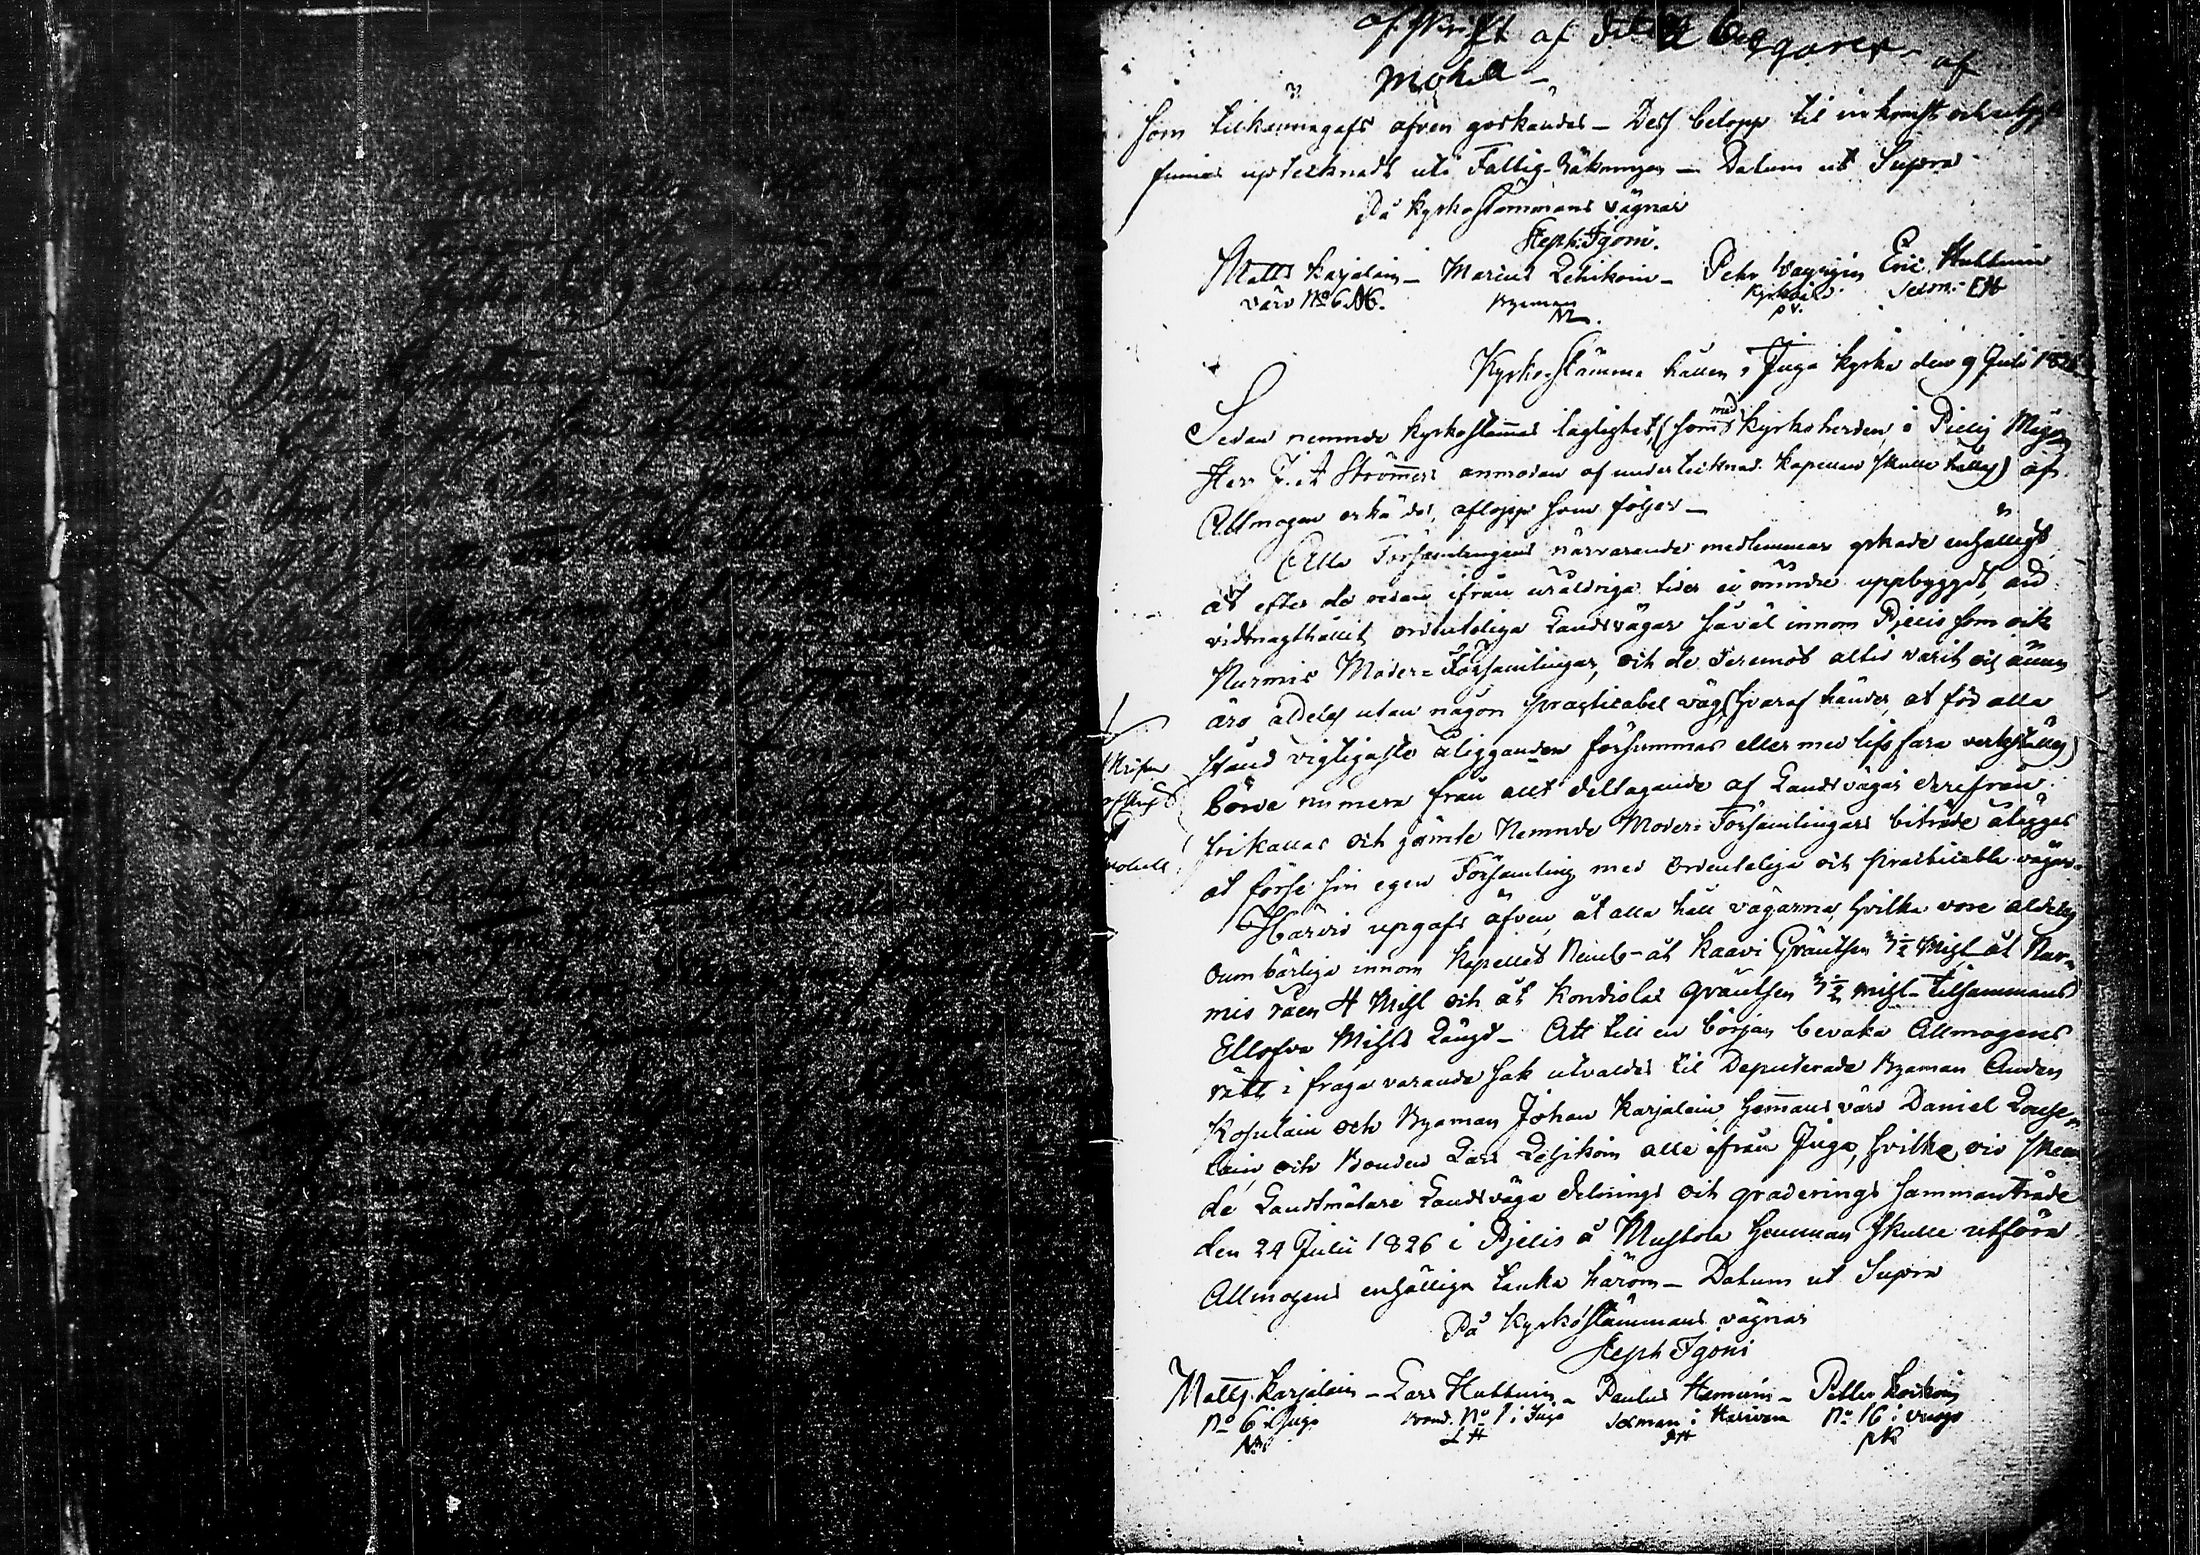 afskrift af
som tilkännagafs äfven godkändes – Dess belopp til inkomst och utgift
finnes uptecknadt uti Fattig-Räkningen – Datum ut Supra
På Kyrkostämmans vägnar
Steph: Igoni.
Matts Karjalain – Marcus Lehikoin – Pehr Eric Huttunin
värd No 6 Byeman Kyrkovärd Sexm: EH
Kyrko-Stämma hållen i Juga kyrka den 9 Juli 1826
Sedan nemnde kyrkostämmas laglighet, (som med Kyrkoherden i Pielis
Herr J. A Strömers anmodan af undertecknad Kapellan skulle hållas) af
Allmogen erkändes, aflopp som följer –
Alla Församlingens närvarande medlemmar yrkade enhälligt,
at efter de redan ifrån uråldriga tider ej mindre uppbyggdt, än
vidmagthållit ordenteliga Landsvägar såväl innom Pjelis som ock
Nurmis Moder-Församlingar, och de deremot altid varit och ännu
äro aldeles utan någon practicabel väg, (hvaraf händer, at för alla
stånd vigtigaste åligganden försummas eller med lifsfara verkställas)
börde numera från allt deltagande af Landsvägar derifrån
frikallas och jämte Nemnde Moder-Församlingars biträde åläggas
at förse sin egen Församling med ordenteliga och practicabla vägar.
Härvid upgafs äfven, åt alla håll vägarna, hvilka vore aldeles
oumbärliga innom Kapellet Neml- åt Kaavi Gräntsen 3½ Mihl åt Nur-
mis råen 4 Mihl och åt Kondiolax gräntsen 3½ mihl – tilsammans
Ellofva Mihls Längd – Att till en början bevaka Allmogens
rätt i fråga varande sak utvaldes til Deputerade Byaman Anders
och Byaman Johan Karjalain Hemans värd Daniel
och Bonden Lars Lehikoin alle ifrån Juga, hvilka vid skeen-
de Landtmätare Landsväga delnings och graderings sammanträde
den 24 Julii 1826 i Pjelis å Mustola Hemman skulle utföra
Allmogens enhälliga tanka härom – Datum ut Supra
På kyrkostämmans vägnar
Steph Igoni
Matts Karjalain – Lars Huttunin – Paulus – Petter Korhoin
No 6 i Juga Bond. No 1 i Juga Sexman i No 16 i
LH PK